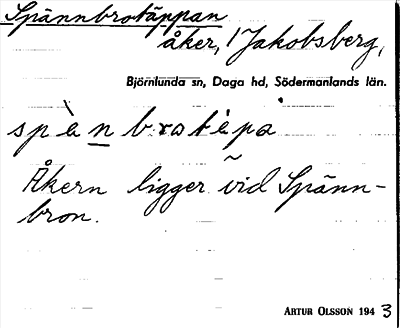 Spännbrotäppan
åker, 1 Jakobsberg,
Björnlunda sn, Daga hd, Södermanlands län.
spànbrotèpa
Åkern ligger vid Spänn-
bron.
ARTUR OLSSON 1943